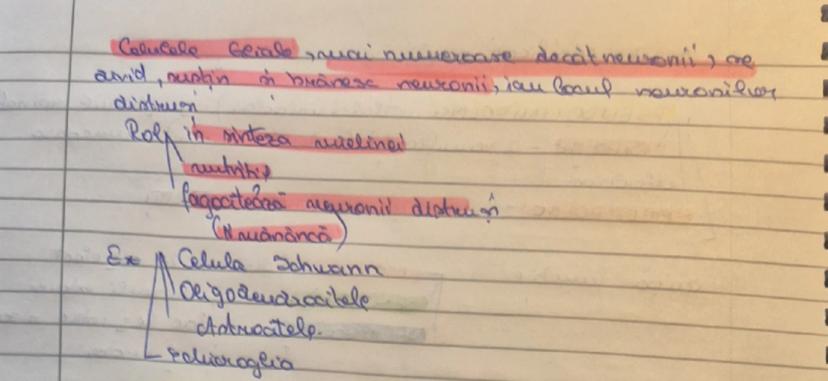 Celulele Gliale, mai numeroase decât neuronii, se
divid, susțin și hrănesc neuronii, iau locul neuronilor
distruși
Rol în sinteza mielinei
nutritiv
fagocitează neuronii distruși
(Mănâncă)
Ex Celula Schwann
Oligodendrocitele
Astrocitele